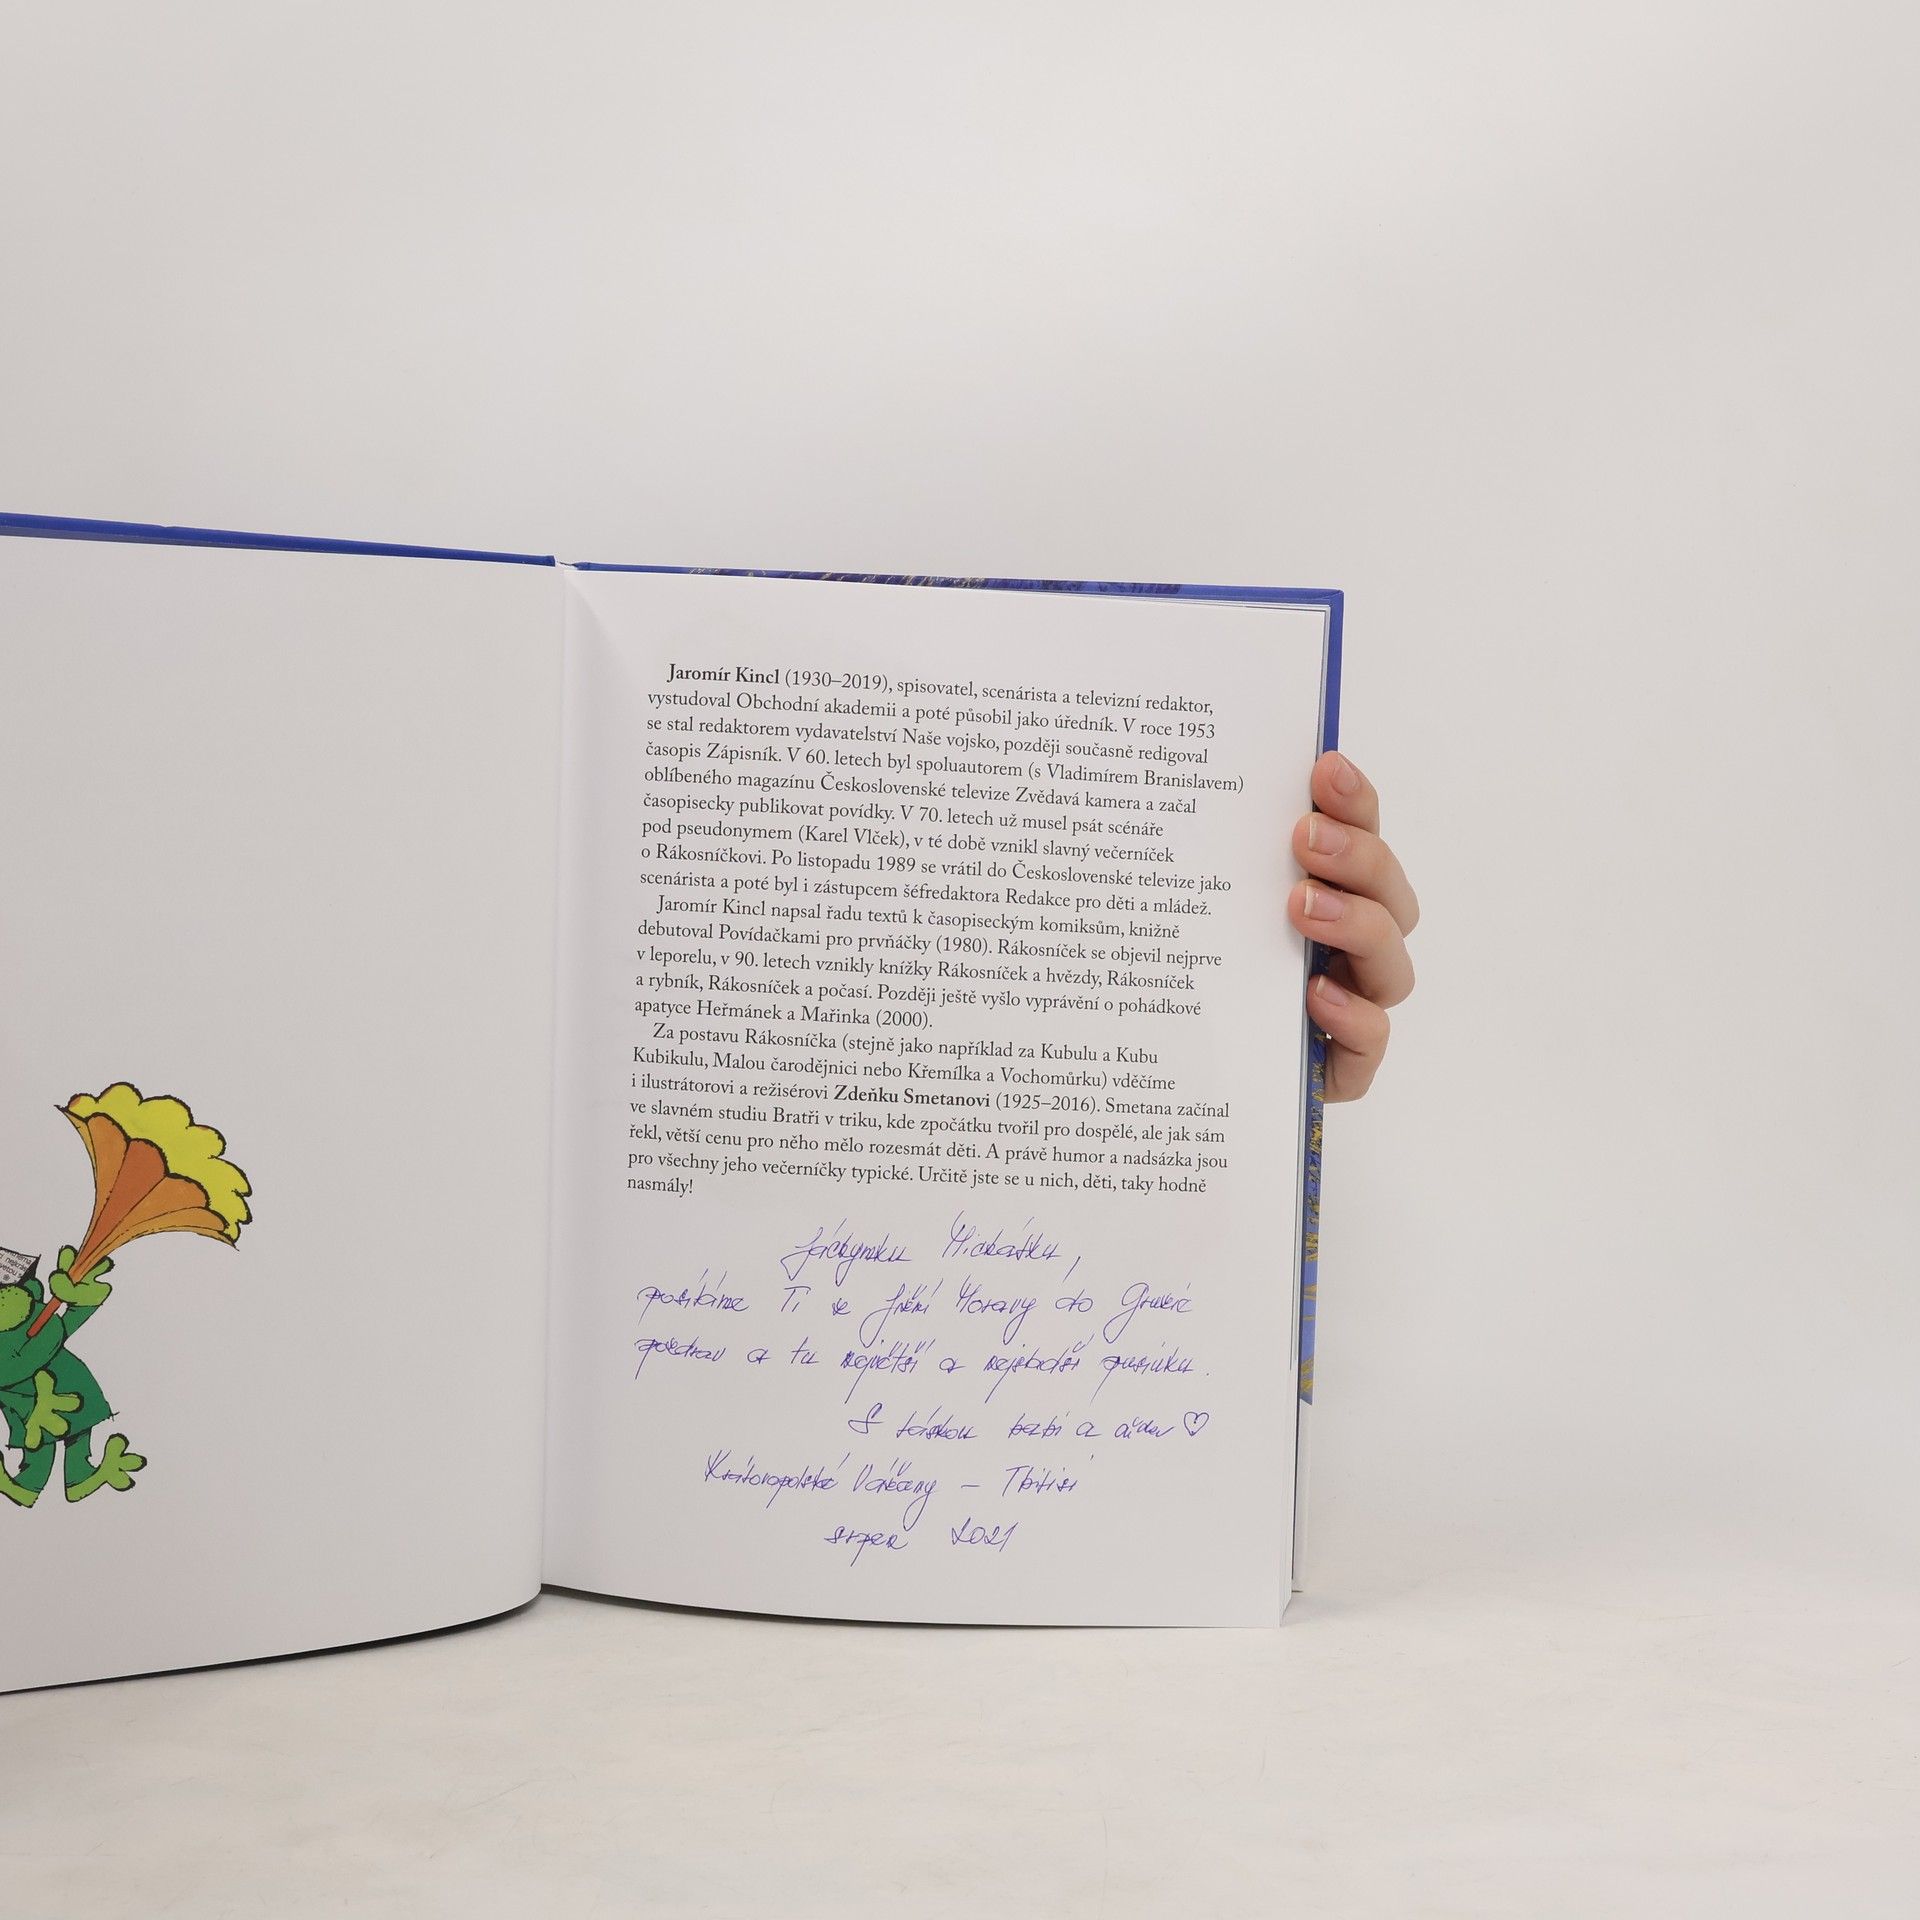 Jaromír Kincl (1930–2019), spisovatel, scenárista a televizní redaktor,
vystudoval Obchodní akademii a poté působil jako úředník. V roce 1953
se stal redaktorem vydavatelství Naše vojsko, později současně redigoval
časopis Zápisník. V 60. letech byl spoluautorem (s Vladimírem Branislavem)
oblíbeného magazínu Československé televize Zvědavá kamera a začal
časopisecky publikovat povídky. V 70. letech už musel psát scénáře
pod pseudonymem (Karel Vlček), v té době vznikl slavný večerníček
o Rákosníčkovi. Po listopadu 1989 se vrátil do Československé televize jako
scenárista a poté byl i zástupcem šéfredaktora Redakce pro děti a mládež.
Jaromír Kincl napsal řadu textů k časopiseckým komiksům, knižně
debutoval Povídačkami pro prvňáčky (1980). Rákosníček se objevil nejprve
v leporelu, v 90. letech vznikly knížky Rákosníček a hvězdy, Rákosníček
a rybník, Rákosníček a počasí. Později ještě vyšlo vyprávění o pohádkové
apatyce Heřmánek a Mařinka (2000).
Za postavu Rákosníčka (stejně jako například za Kubulu a Kubu
Kubikulu, Malou čarodějnici nebo Křemílka a Vochomůrku) vděčíme
i ilustrátorovi a režisérovi Zdeňku Smetanovi (1925–2016). Smetana začínal
ve slavném studiu Bratři v triku, kde zpočátku tvořil pro dospělé, ale jak sám
řekl, větší cenu pro něho mělo rozesmát děti. A právě humor a nadsázka jsou
pro všechny jeho večerníčky typické. Určitě jste se u nich, děti, taky hodně
nasmály!
Jáchymku
posíláme Ti z Jižní Moravy do Gruzie
pozdrav a tu největší a nejsladší pusinku.
S láskou babi a děda
Královopolské Vážany – Tbilisi
srpen 2021